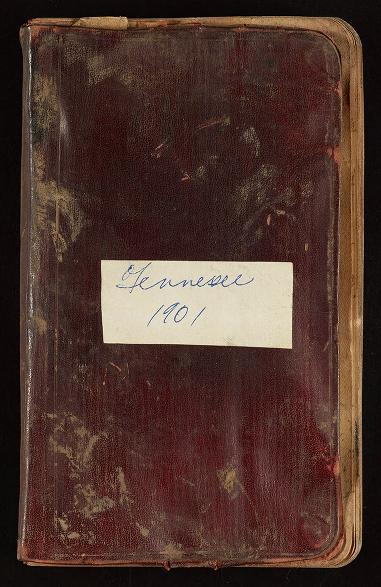 Tennessee
1901